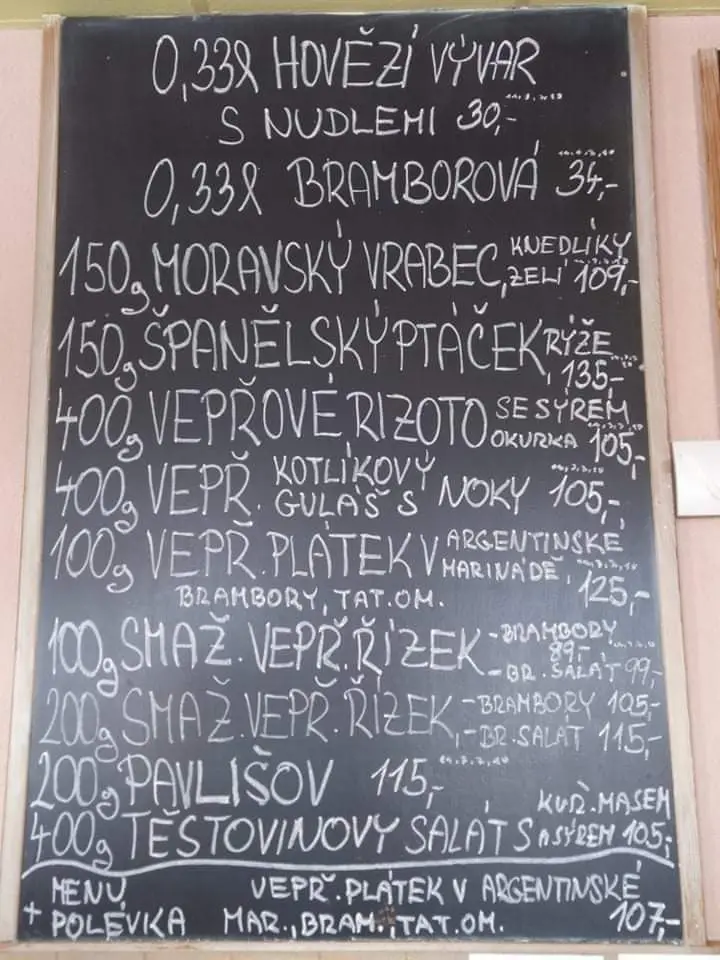 0,33l HOVĚZÍ VÝVAR
S NUDLEMI 30,-
0,33l BRAMBOROVÁ 34,-
150g MORAVSKÝ VRABEC, KNEDLÍKY
ZELÍ 109,-
150g ŠPANĚLSKÝ PTÁČEK, RÝŽE
135,-
400g VEPŘOVÉ RIZOTO SE SÝREM
OKURKA 105,-
400g VEPŘ. KOTLÍKOVÝ
GULÁŠ S NOKY 105,-
100g VEPŘ. PLÁTEK V ARGENTINSKÉ
MARINÁDĚ,
BRAMBORY, TAT. OM. 125,-
100g SMAŽ. VEPŘ. ŘÍZEK - BRAMBORY
89,-
- BR. SALÁT 99,-
200g SMAŽ. VEPŘ. ŘÍZEK, - BRAMBORY 105,-
- BR. SALÁT 115,-
200g PAVLIŠOV 115,-
400g TĚSTOVINOVÝ SALÁT S KUŘ. MASEM
A SÝREM 105,-
MENU VEPŘ. PLÁTEK V ARGENTINSKÉ
+ POLÉVKA MAR., BRAM., TAT. OM. 107,-